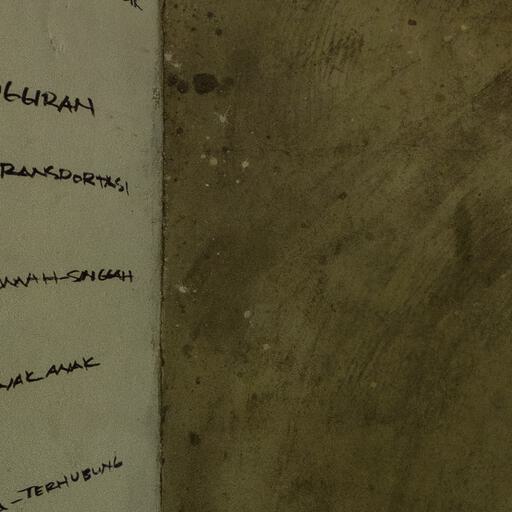 GGIRAN
RANSPORTASI
MAH-SINGGAH
NAK ANAK
A-TERHUBUNG